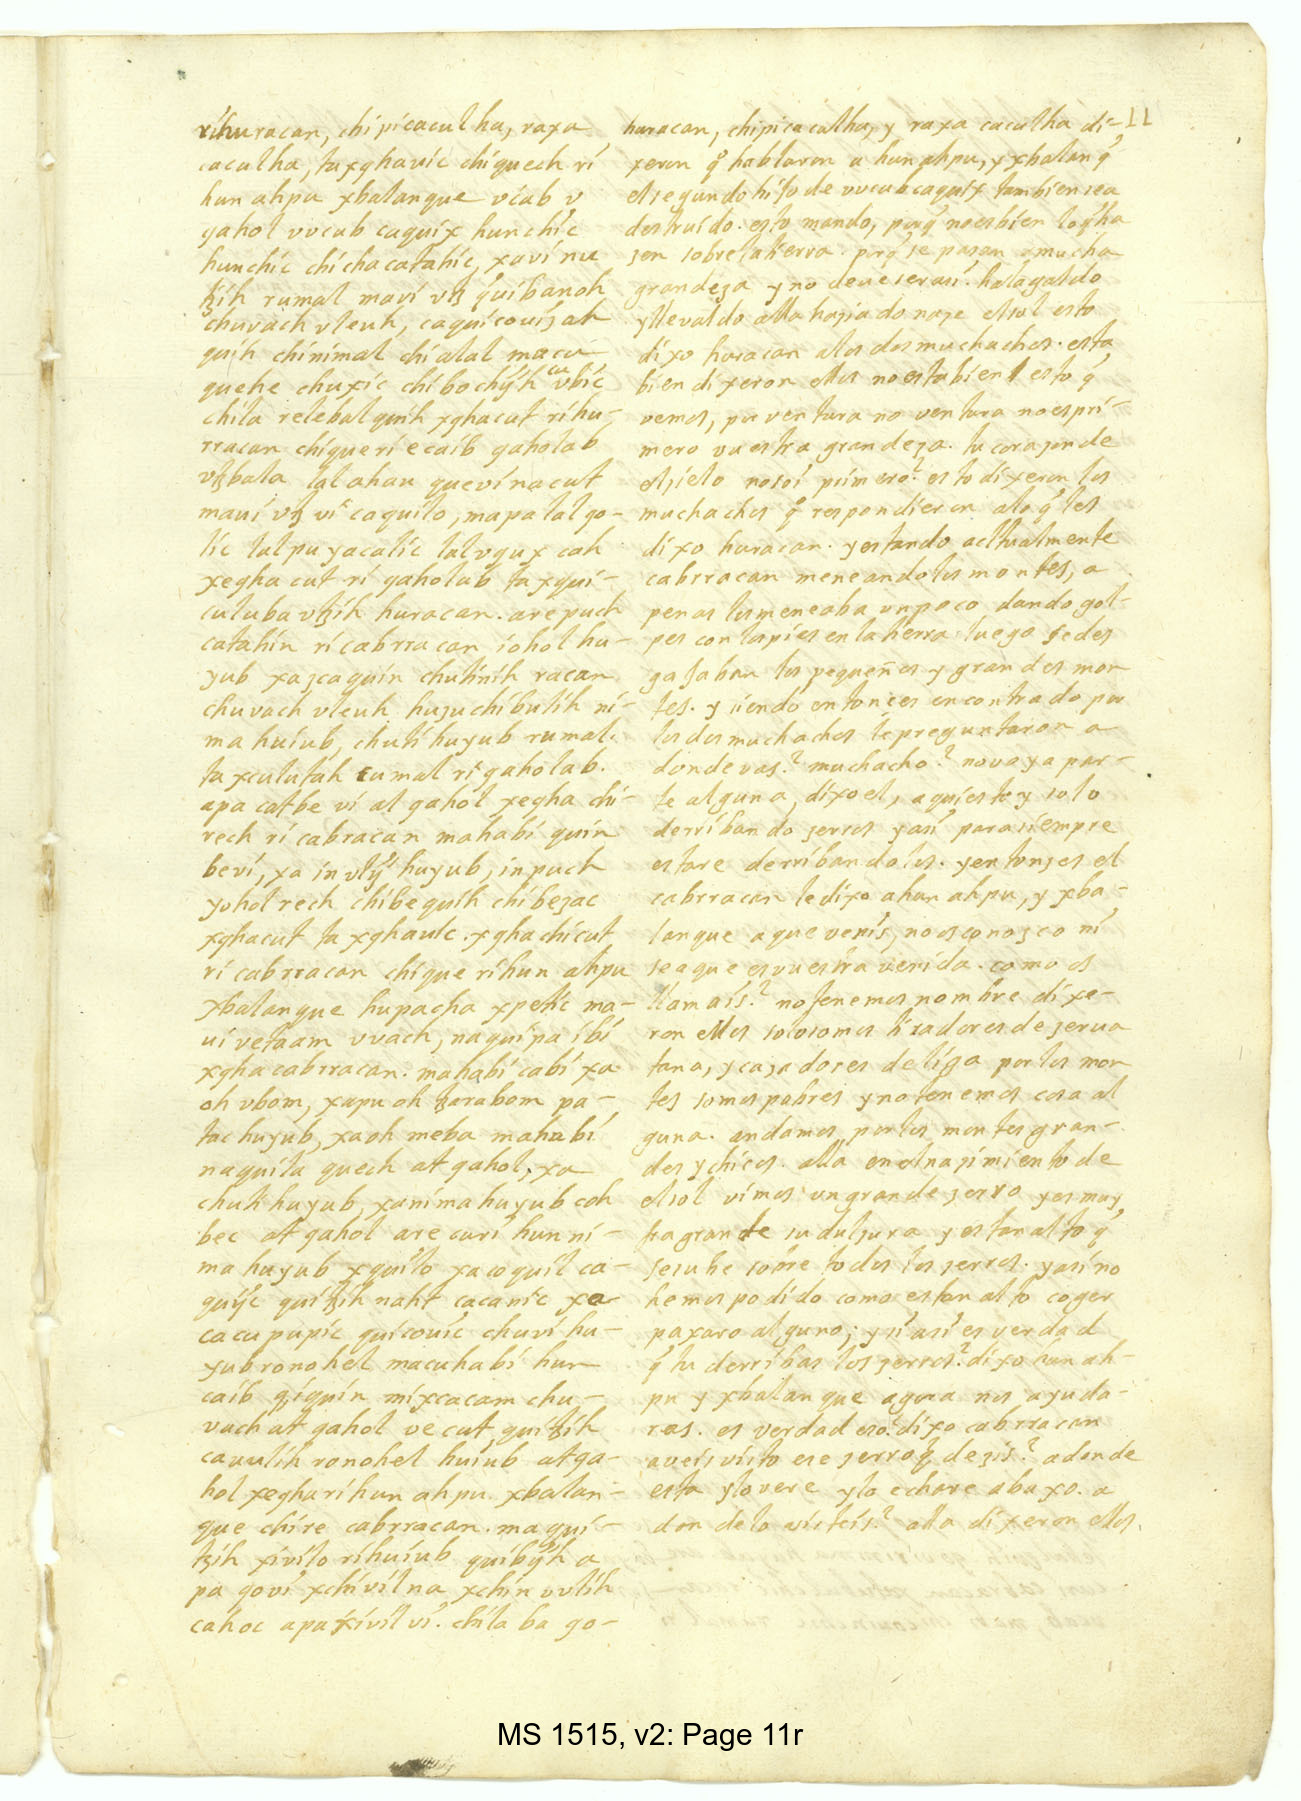 11
rihuracan, chipicaculha, raxa
caculha, taxqhavic chiquech ri
hun ahpu xbalanque vcab v
gahol vvcub caquix hunchic
hunchic chichacatahic, xavi nu
tzih rumal mavi vtz quibanoh
chuvach vleuh, caquicouizah
quih chinimal chialal macu
quehe chuxic chibochijh cu vbic
chila relebal quih xqhacut rihu-
rracan chiqueri ecaib gaholab
vtzbala lal ahau quevinacut
maui vtz vi caquilo, mapa lal go-
lic lal pu yacalic lal vqux cah
xeqha cut ri gaholab ta xqui-
culuba vtzih huracan. arepuch
catahin ri cabrracan iohol hu-
yub xazcaquin chutinih racan
chuvach vleuh huzuchibulih ni-
ma huiub, chuti huyub rumal.
ta xculutah rumal ri gaholab.
apa catbe vi at gahol xeqha chi-
rech ri cabracan mahabi quin
bevi, xa in vlij huyub, in puch
yohol rech chibe quih chibezac
xqhacut ta xqhaulc. xqhachicut
ri cabrracan chique rihun ahpu
xbalanque hupacha xpetic ma-
ui vetaam vvach, naquipa ibi
xqha cabrracan. mahabi cabi xa
oh vbom, xapu oh tzarabom pa-
tac huyub, xaoh meba mahabi
naquila quech at gahol, xa
chuti huyub, xanima huyub coh
bec at gahol are curi hun ni-
ma huyub xquilo xacoquil ca-
quijc quitzih naht cacanic xa
cacu pupic quicouic chuvi hu-
yub ronohel macuhabi hun
caib qiquin mixcacam chu-
vach at gahol ve cut quitzih
cavulih ronohel huiub at ga-
hol xeqha rihun ahpu xbalan-
que chire cabrracan. ma qui-
tzih xivilo rihuiub quibijh a
pa govi xchivilna xchin vvlih
cahoc apa xivil vi. chila ba go-
huracan, chipicaculha, y raxa caculha di-
xeron q hablaron a hun ahpu, y xbalanq
el segundo hijo de vucub caquix tambien sea
destruido. esto mando, porq no es bien lo q ha
zen sobre la tierra. porq se pasan a mucha
grandeza y no deue ser asi. halagaldo
y llevaldo alla hazia do naze el sol esto
dixo huracan a los dos muchachos. esta
bien dixeron ellos no esta bien esto q
vemos, por ventura no ventura no es pri-
mero vuestra grandeza. tu corazon de
el zielo no soi primero? esto dixeron los
muchachos q respondieron a lo q les
dixo huracan. y estando actualmente
cabrracan meneando los montes, a
penas los meneaba vn poco dando gol-
pes con los pies en la tierra luego se des
gajaban los pequeños y grandes mon
tes. y siendo entonces encontrado por
los dos muchachos le preguntaron a
donde vas? muchacho? no vaya par-
te alguna, dixo el, aqui estoy solo
derribando zerros y asi para siempre
estare derribandolos. y entonzes el
cabrracan le dixo a hun ahpu, y xba-
lanque a que venis, no os conozco ni
se a que es vuestra venida. como os
llamais? no tenemos nombre dixe-
ron ellos solo somos tiradores de zerua
tana, y cazadores de liga por los mon
tes somos pobres y no tenemos cosa al
guna. andamos por los montes gran-
des y chicos. alla en el nazimiento de
el sol vimos vn grande zerro y es muy
fragrante su dulzura y es tan alto q
se sube sobre todos los zerros. y asi no
hemos podido como es tan alto coger
paxaro alguno; y si asi es verdad
q tu derribas los zerros? dixo hun ah-
pu y xbalanque agora nos ayuda-
ras. es verdad eso? dixo cabrracan
aveis visto ese zerro q dezis? a donde
esta y lo vere y lo echare abaxo. a
don de lo visteis? alla dixeron ellos.
MS 1515, v2: Page 11r